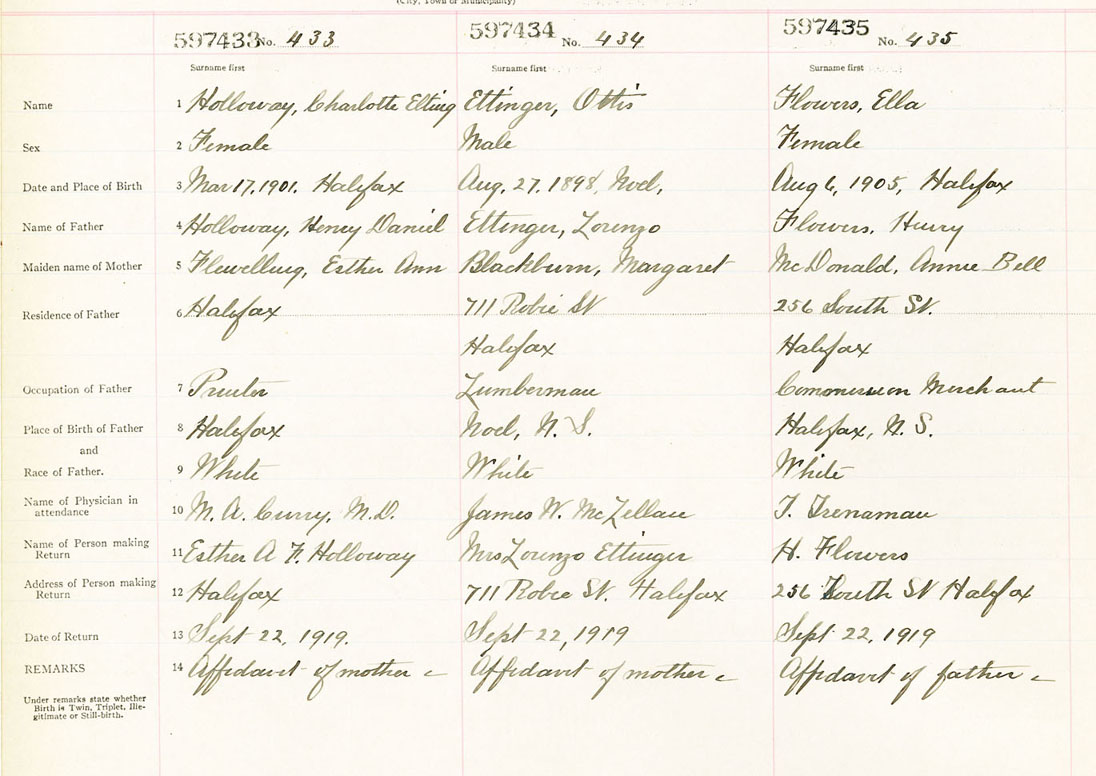 (City, Town or Municipality)
597433 No. 433 597434 No. 434 597435 No. 435
Surname first Surname first Surname first
Name 1 Holloway, Charlotte Elting Ettinger, Ottis Flowers, Ella
Sex 2 Female Male Female
Date and Place of Birth 3 Mar 17, 1901, Halifax Aug. 27, 1898, Noel, Aug 6, 1905, Halifax
Name of Father 4 Holloway, Henry Daniel Ettinger, Lorenzo Flowers, Henry
Maiden name of Mother 5 Flewelling, Esther Ann Blackburn, Margaret McDonald, Annie Bell
Residence of Father 6 Halifax 711 Robie St 256 South St.
Halifax Halifax
Occupation of Father 7 Lumberman Commission Merchant
Place of Birth of Father 8 Halifax Noel, N. S. Halifax, N. S.
and
Race of Father. 9 White White White
Name of Physician in
attendance 10 M. A. Curry, M.D. James W. McLellan T. Trenaman
Name of Person making
Return 11 Esther A F. Holloway Mrs Lorenzo Ettinger H. Flowers
Address of Person making
Return 12 Halifax 711 Robie St. Halifax 256 South St Halifax
Date of Return 13 Sept 22, 1919. Sept 22, 1919 Sept 22, 1919
REMARKS 14 Affidavit of mother Affidavit of mother Affidavit of father
Under remarks state whether
Birth is Twin, Triplet, Ille-
gitimate or Still-birth.